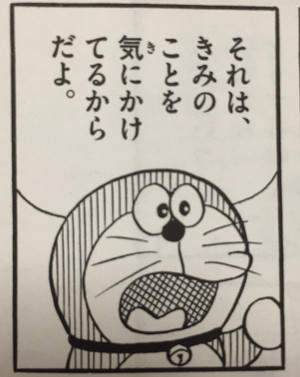 それは、
きみの
ことを
気にかけ
てるから
だよ。